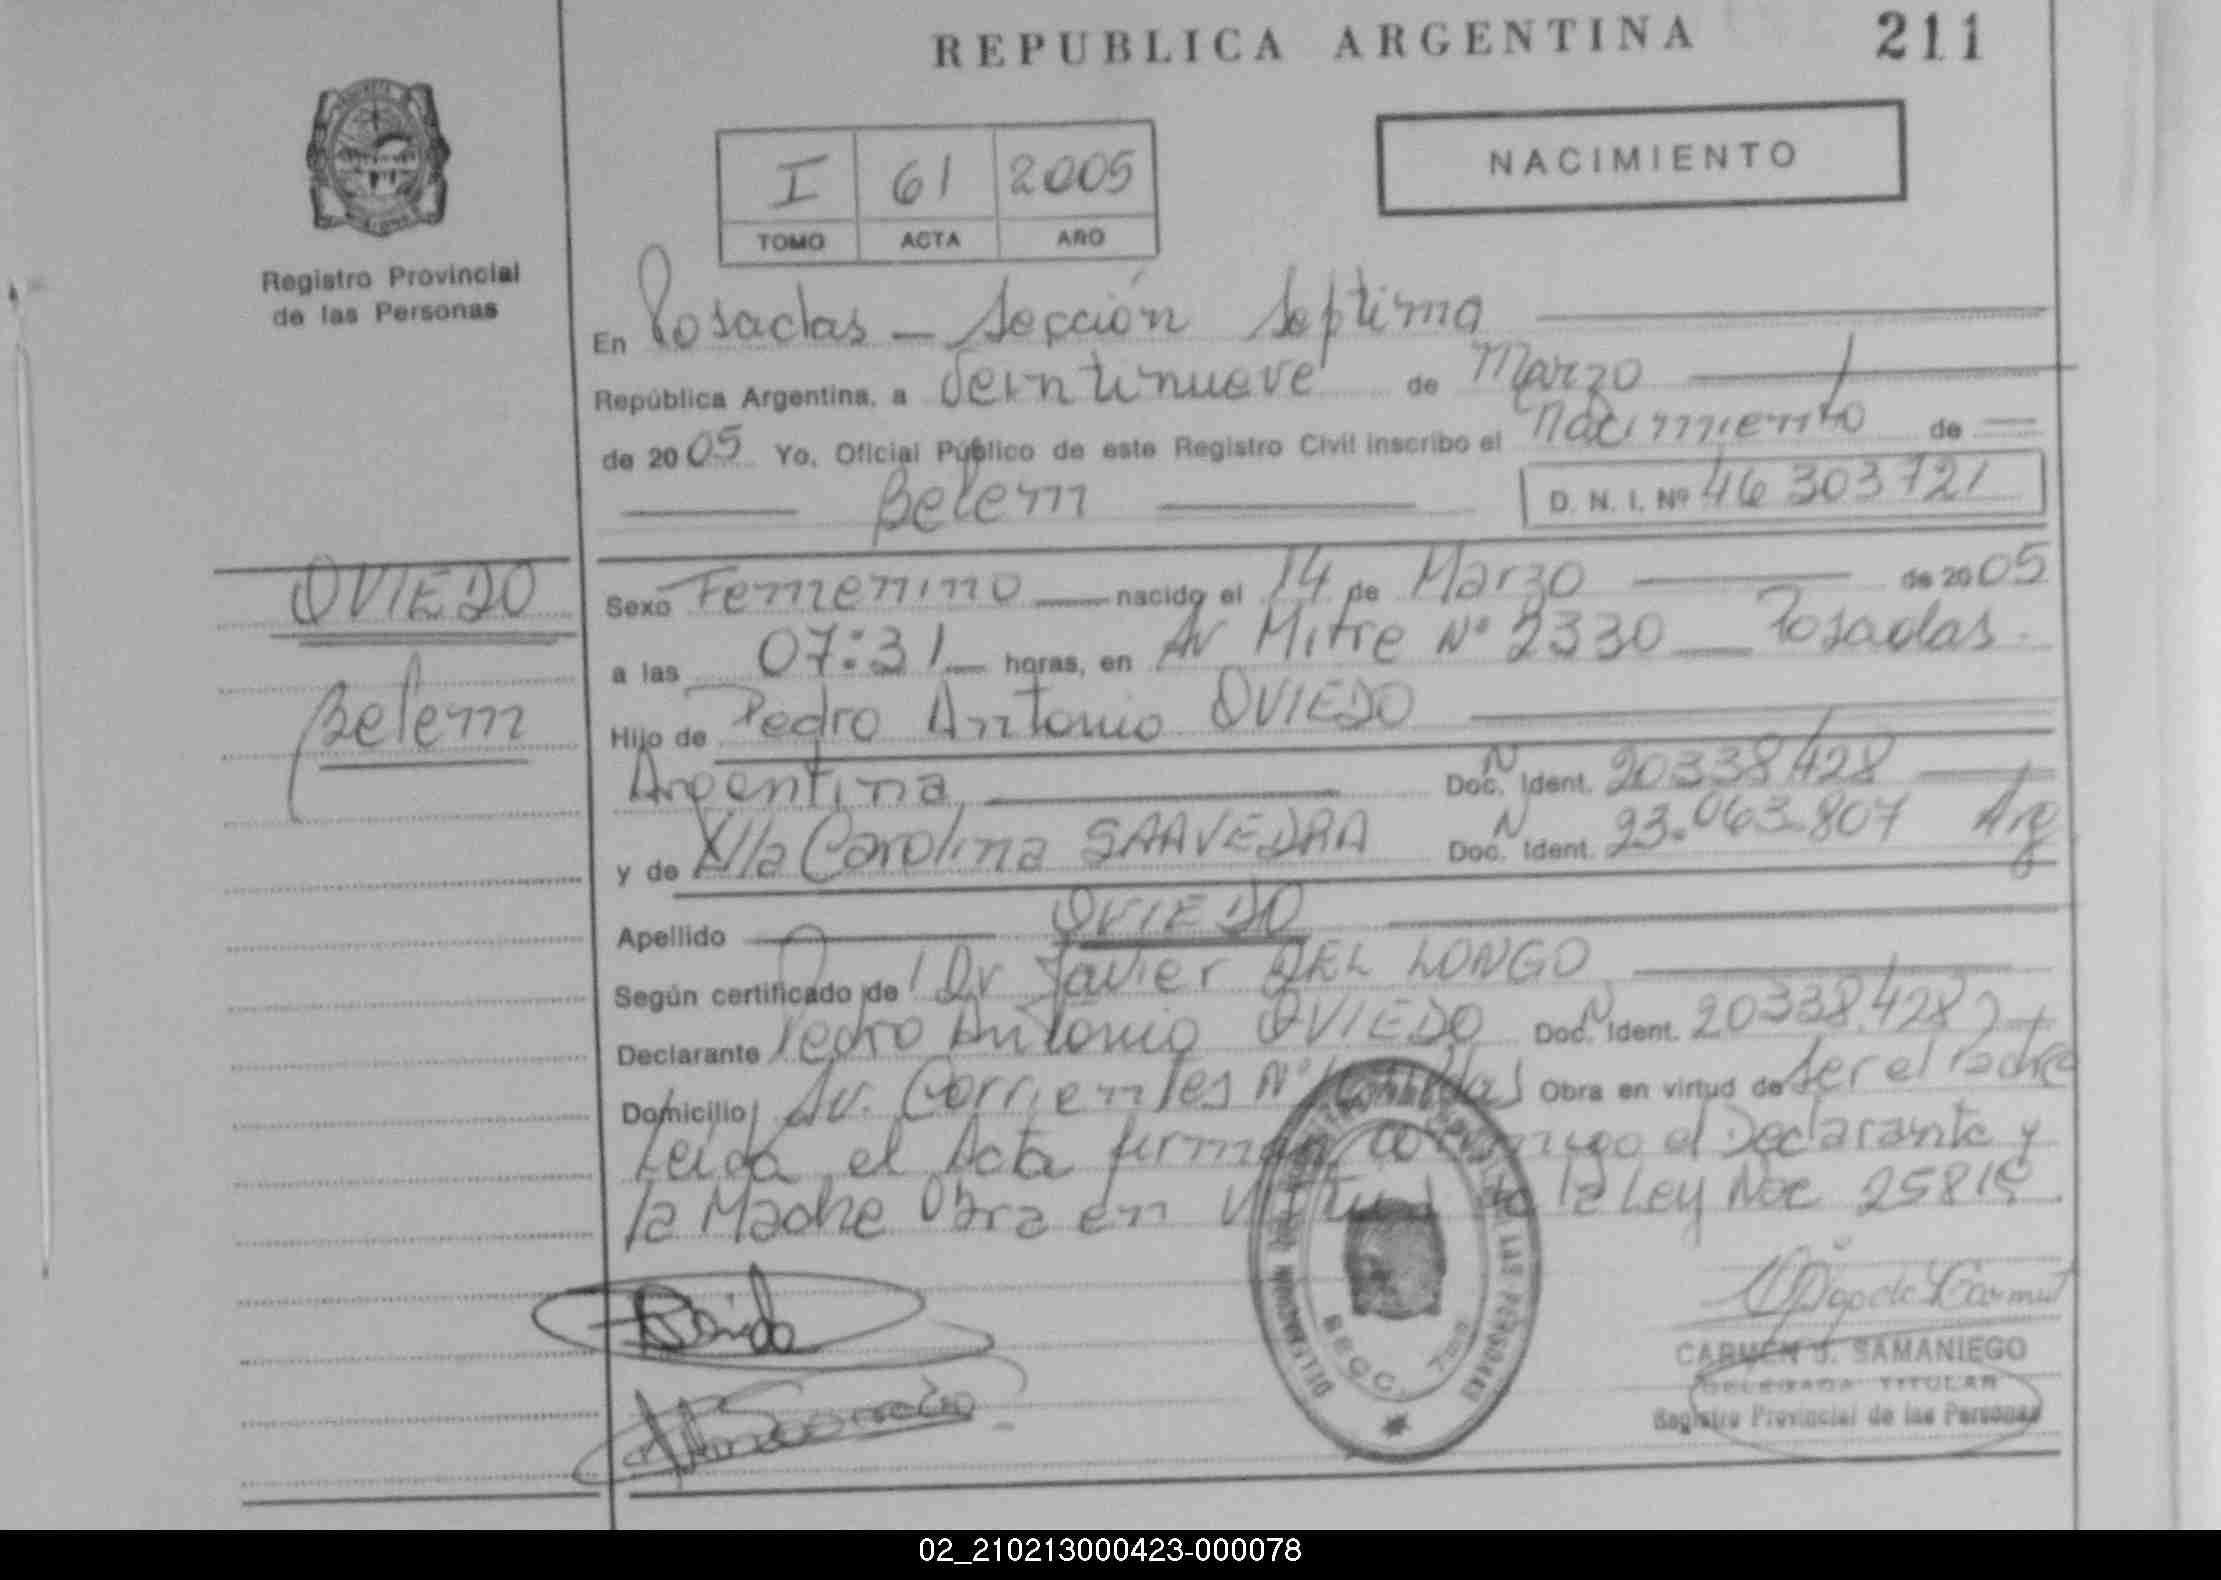 REPUBLICA ARGENTINA
211
Registro Provincial
de las Personas
I 61 2005
TOMO ACTA AÑO
NACIMIENTO
En Posadas - Sección Septima
República Argentina, a Veintinueve de Marzo
de 2005 Yo, Oficial Público de este Registro Civil inscribo el Nacimiento de
Belem
D. N. I. Nº 46 303 721
OVIEDO
Belem
Sexo Femenino nacido el 14 de Marzo de 2005
a las 07:31 horas, en Av Mitre Nº 2330 Posadas
Hijo de Pedro Antonio OVIEDO
Argentina Doc. N Ident. 20338428
y de Carolina SAAVEDRA Doc. N Ident. 23.063.807 Arg
Apellido OVIEDO
Según certificado de Dr Javier DEL LONGO
Declarante Pedro Antonio OVIEDO Doc. N Ident. 20338.428
Domicilio Av. Corrientes Nº Obra en virtud de Ser el Padre
Leida el Acta firman conmigo el Declarante y
la Madre Obra en Virtud de la Ley Nac 25818
CARMEN J. SAMANIEGO
DELEGADA TITULAR
Registro Provincial de las Personas
LAS PERSONAS
02_210213000423-000078